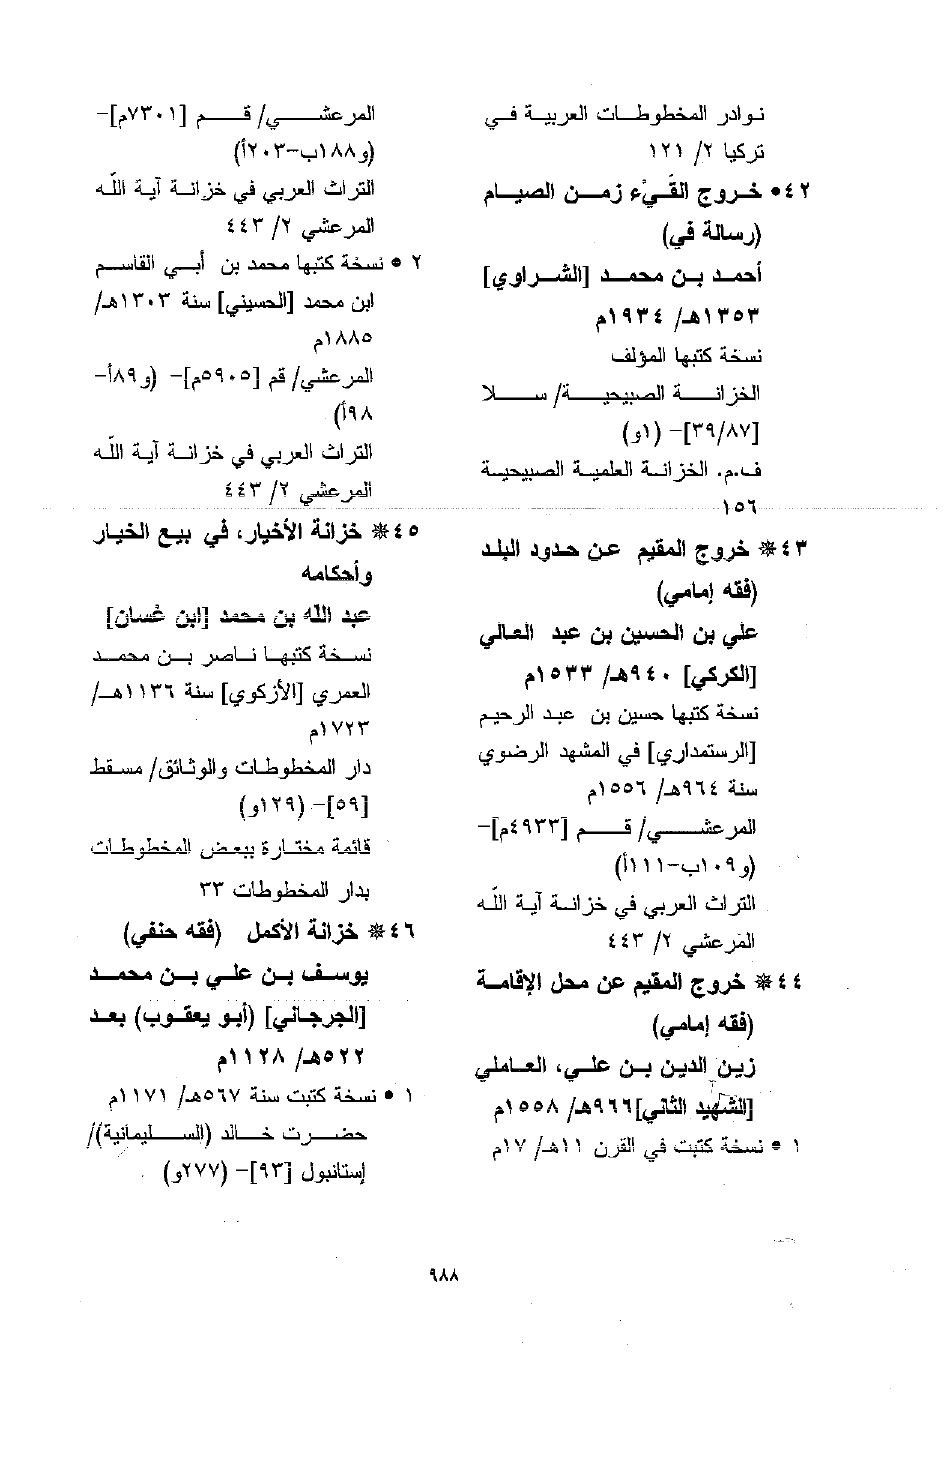 نوادر المخطوطات العربية في
تركيا ٢/ ١٢١
٤٢• خروج القَيْء زمن الصيام
(رسالة في)
أحمد بن محمد [الشراوي]
١٣٥٣هـ/ ١٩٣٤م
نسخة كتبها المؤلف
الخزانة الصبيحية/ سلا
[٣٩/٨٧]- (١و)
ف.م. الخزانة العلمية الصبيحية
١٥٦
٤٣❋ خروج المقيم عن حدود البلد
(فقه إمامي)
علي بن الحسين بن عبد العالي
[الكركي] ٩٤٠هـ/ ١٥٣٣م
نسخة كتبها حسين بن عبد الرحيم
[الرستمداري] في المشهد الرضوي
سنة ٩٦٤هـ/ ١٥٥٦م
المرعشي/ قم [٤٩٣٣م]-
(و١٠٩ب-١١١أ)
التراث العربي في خزانة آية اللّه
المرعشي ٢/ ٤٤٣
٤٤❋ خروج المقيم عن محل الإقامة
(فقه إمامي)
زين الدين بن علي، العاملي
[الشهيد الثاني]٩٦٦هـ/ ١٥٥٨م
١ • نسخة كتبت في القرن ١١هـ/ ١٧م
المرعشي/ قم [٧٣٠١م]-
(و١٨٨ب-٢٠٣أ)
التراث العربي في خزانة آية اللّه
المرعشي ٢/ ٤٤٣
٢ • نسخة كتبها محمد بن أبي القاسم
ابن محمد [الحسيني] سنة ١٣٠٣هـ/
١٨٨٥م
المرعشي/ قم [٥٩٠٥م]- (و٨٩أ-
٩٨أ)
التراث العربي في خزانة آية اللّه
المرعشي ٢/ ٤٤٣
٤٥❋ خزانة الأخيار، في بيع الخيار
وأحكامه
عبد الله بن محمد [ابن غسان]
نسخة كتبها ناصر بن محمد
العمري [الأزكوي] سنة ١١٣٦هـ/
١٧٢٣م
دار المخطوطات والوثائق/ مسقط
[٥٩]- (١٢٩و)
قائمة مختارة ببعض المخطوطات
بدار المخطوطات ٣٣
٤٦❋ خزانة الأكمل (فقه حنفي)
يوسف بن علي بن محمد
[الجرجاني] (أبو يعقوب) بعد
٥٢٢هـ/ ١١٢٨م
١ • نسخة كتبت سنة ٥٦٧هـ/ ١١٧١م
حضرت خالد (السليمانية)/
إستانبول [٩٣]- (٢٧٧و)
٩٨٨